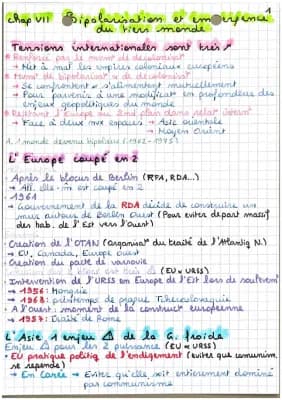 chap VII Bipolarisation et émergence 1
du tiers monde
Tensions internationales sont très ↗
* Renforcé par le mvmt de décolonisat°
→ Met à mal les empires coloniaux européens
* Mvmt de bipolarisat° & de décolonisat°
→ Se confrontent & s'alimentent mutuellement
→ Pour parvenir à une modificat° en profondeur des
enjeux géopolitiques du monde
* Rejettent l'Europe au 2nd plan dans relat° intern
→ Face à deux nvx espaces → Asie orientale
→ Moyen Orient
A. 1 monde devenu bipolaire
L'Europe coupé en 2
→ Après le blocus de Berlin (RFA, RDA...)
→ All. elle-m est coupé en 2
→ 1961
→ Gouvernement de la RDA décide de construire un
mur autour de Berlin Ouest (Pour éviter départ massif
des hab. de l'Est vers l'Ouest)
→ Création de l'OTAN (Organisat° du traité de l'Atlantiq N.)
→ EU, Canada, Europe ouest
→ Création du pacte de varsovie
les 2 blocs est très △ (EU ≠ URSS)
→ Intervention de l'URSS en Europe de l'Est lors de soulèvem
→ 1956 : Hongrie
→ 1968 : printemps de prague Tchécoslovaquie
→ A l'ouest : moment de la construct européenne
→ 1957 : Traité de Rome
L'Asie 1 enjeu △ de la G. froide
Enjeu △ pour les 2 puissances (EU ≠ URSS)
→ EU pratique politiq de l'endigement (éviter que communism.
se répende)
→ En Corée → Eviter qu'elle soit entièrement dominé
par communisme